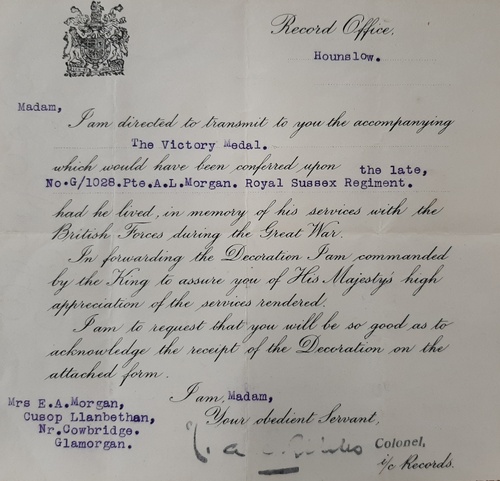 Record Office,
Hounslow.
Madam,
I am directed to transmit to you the accompanying
The Victory Medal.
which would have been conferred upon the late,
No.G/1028.Pte.A.L.Morgan. Royal Sussex Regiment.
had he lived, in memory of his services with the
British Forces during the Great War.
In forwarding the Decoration I am commanded
by the King to assure you of His Majesty's high
appreciation of the services rendered.
I am to request that you will be so good as to
acknowledge the receipt of the Decoration on the
attached form.
I am, Madam,
Your obedient Servant,
Colonel,
i/c Records.
Mrs E.A.Morgan,
Cusop Llanbethan,
Nr.Cowbridge.
Glamorgan.